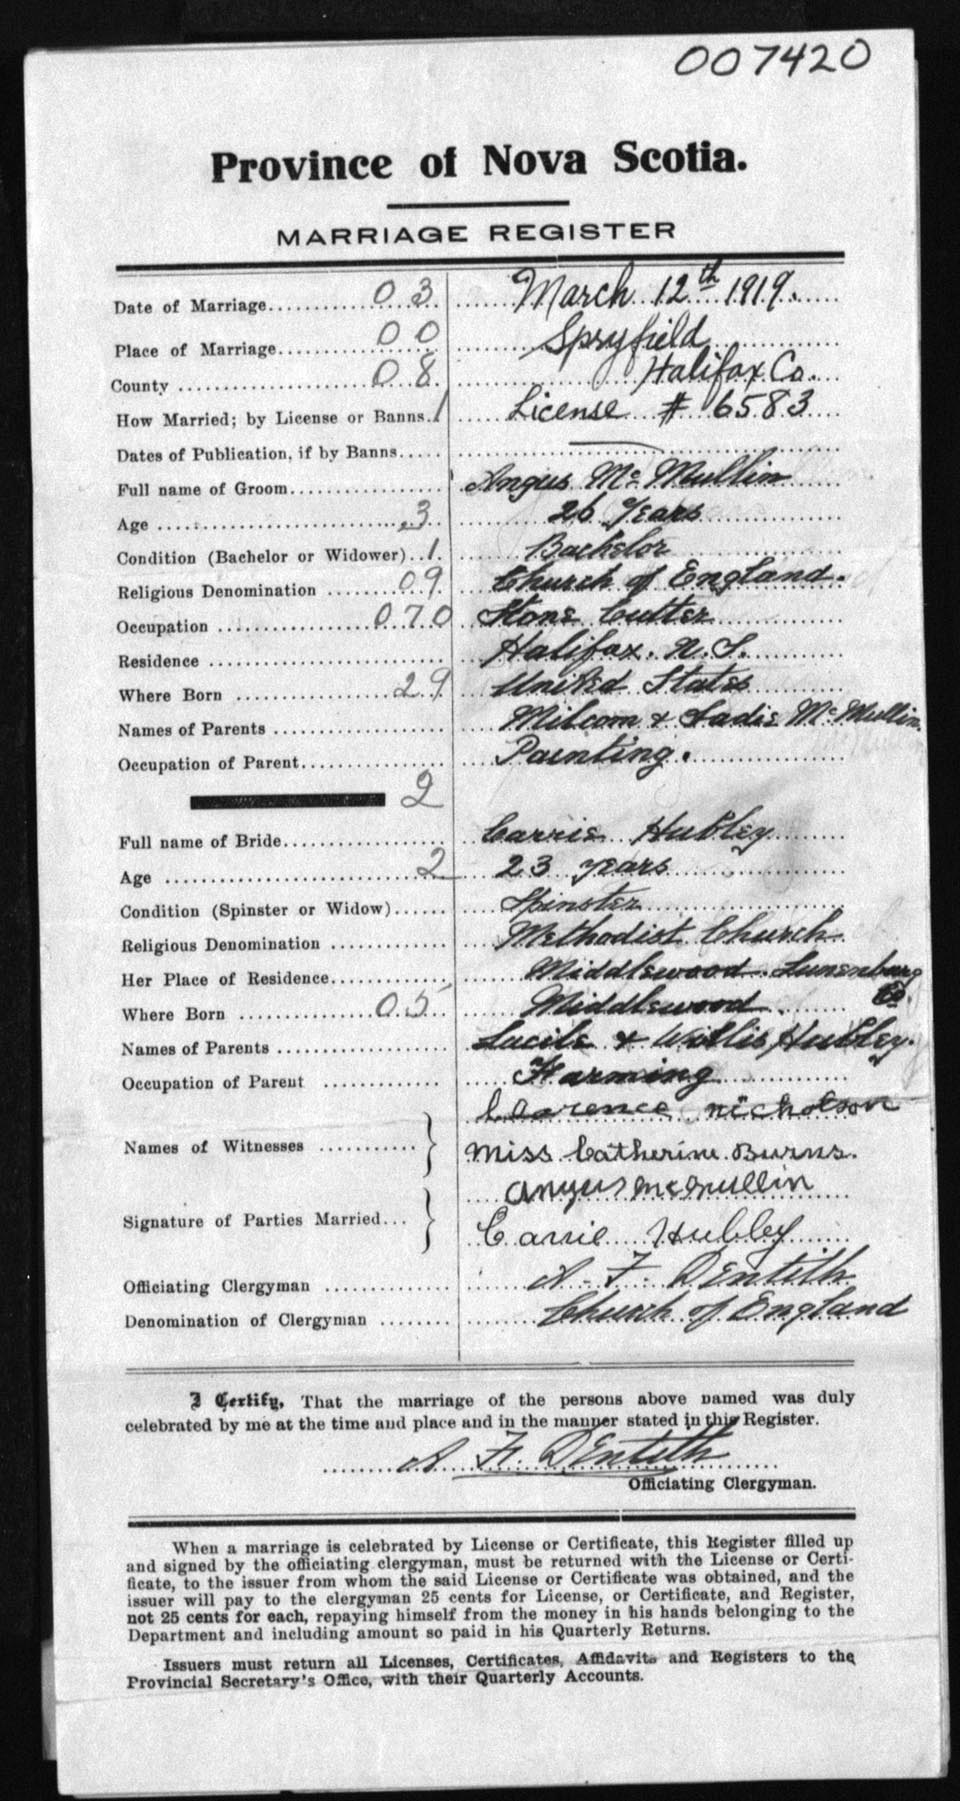 007420
Province of Nova Scotia.
MARRIAGE REGISTER
Date of Marriage 03 March 12th 1919.
Place of Marriage 00 Spryfield
County 08 Halifax Co.
How Married; by License or Banns. 1 License # 6583
Dates of Publication, if by Banns
Full name of Groom Angus Mc Mullin
Age 3 26 Years
Condition (Bachelor or Widower) 1 Bachelor
Religious Denomination 09 Church of England.
Occupation 070 Stone Cutter
Residence Halifax. N.S.
Where Born 29 United States
Names of Parents & Sadie Mc Mullin
Occupation of Parent Painting.
2
Full name of Bride Carrie Hubley
Age 2 23 years
Condition (Spinster or Widow) Spinster
Religious Denomination Methodist Church
Her Place of Residence Middlewood. Lunenburg Co.
Where Born 05 Middlewood
Names of Parents Lucile & Willis Hubley.
Occupation of Parent Farming
Clarence Nicholson
Names of Witnesses Miss Catherine Burns.
Angus McMullin
Signature of Parties Married Carrie Hubley
Officiating Clergyman A. F. Dentith
Denomination of Clergyman Church of England
I Certify, That the marriage of the persons above named was duly
celebrated by me at the time and place and in the manner stated in this Register.
A F. Dentith
Officiating Clergyman.
When a marriage is celebrated by License or Certificate, this Register filled up
and signed by the officiating clergyman, must be returned with the License or Certi-
ficate, to the issuer from whom the said License or Certificate was obtained, and the
issuer will pay to the clergyman 25 cents for License, or Certificate, and Register,
not 25 cents for each, repaying himself from the money in his hands belonging to the
Department and including amount so paid in his Quarterly Returns.
Issuers must return all Licenses, Certificates, Affidavits and Registers to the
Provincial Secretary's Office, with their Quarterly Accounts.